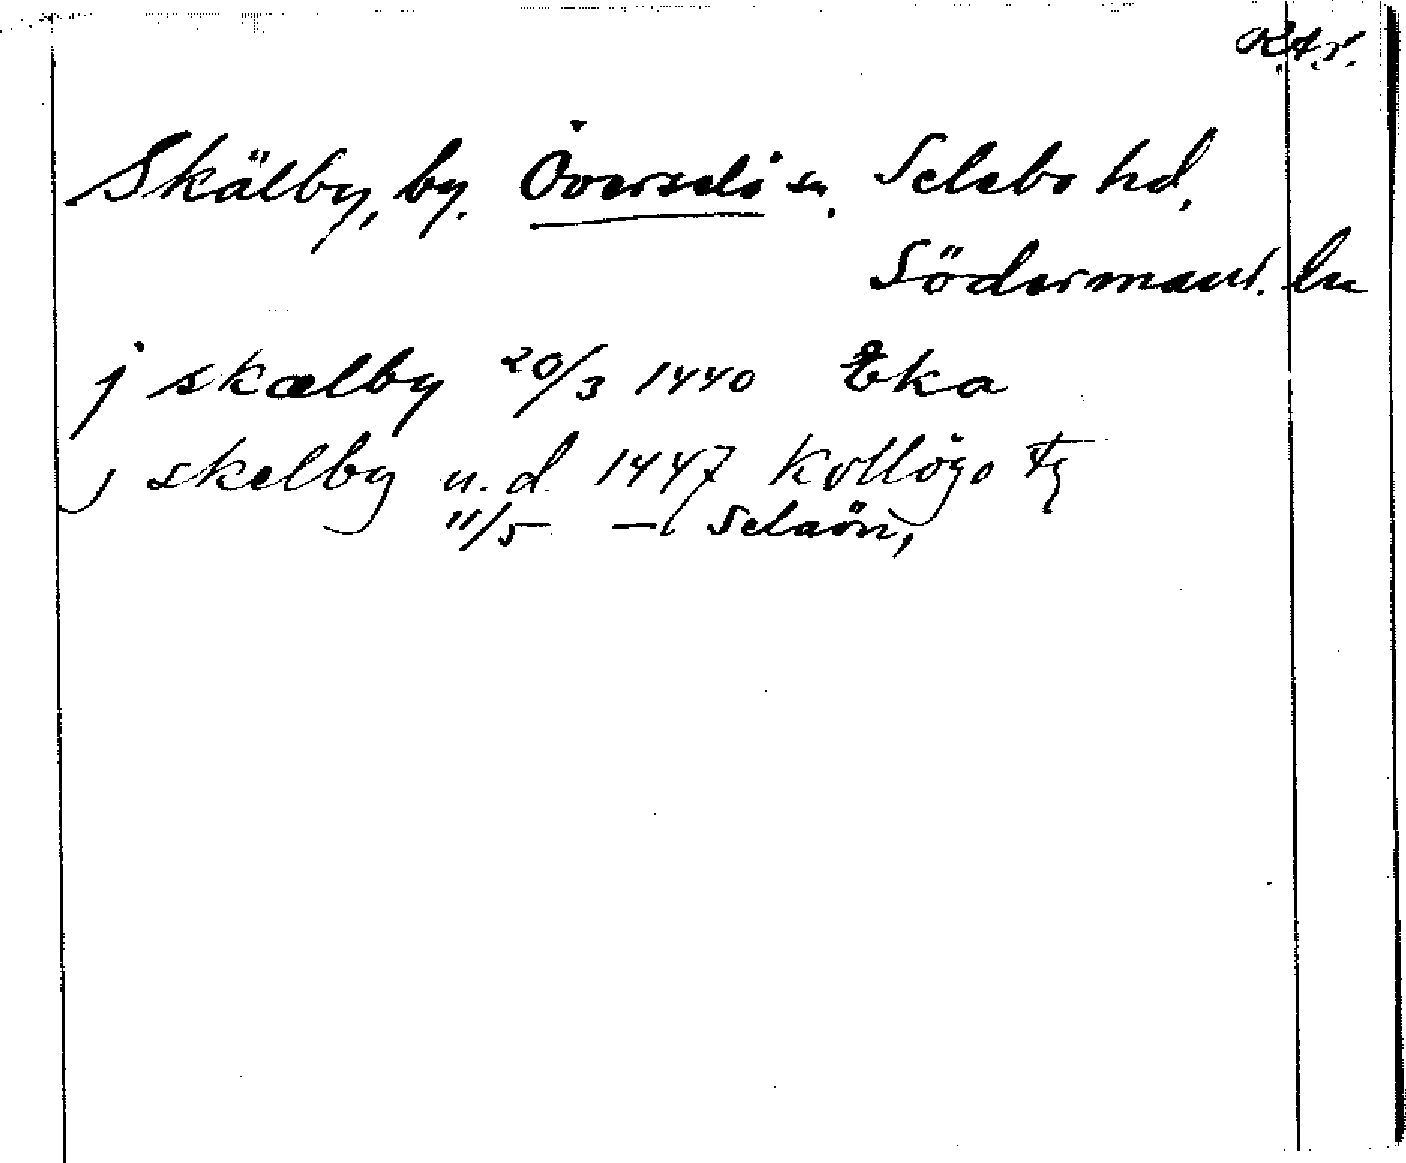 R.A.
Skälby, by. Överselö sn. Selebo hd,
Södermanl. ln
j skælby 20/3 1440 Eka
j skelby u.d 1447
11/5 — Selaön,